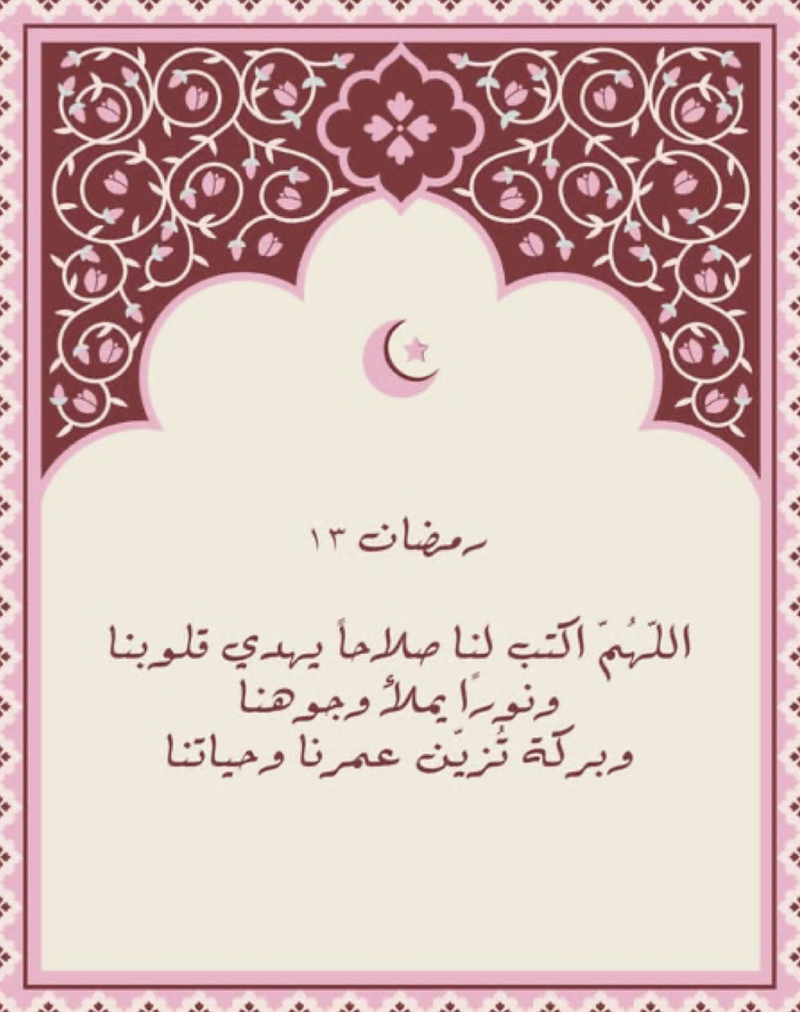 رمضان ١٣
اللّهُمّ اكتب لنا صلاحاً يهدي قلوبنا
ونورًا يملأ وجوهنا
وبركة تُزيّن عمرنا وحياتنا